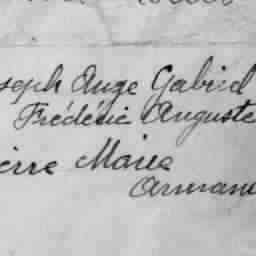 seph Ange Gabriel
Frédéric Auguste
erre Marie
Arman